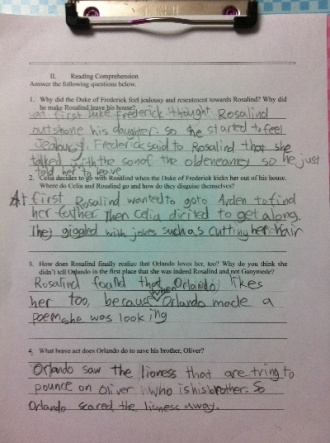 II. Reading Comprehension
Answer the following questions below.
1. Why did the Duke of Frederick feel jealousy and resentment towards Rosalind? Why did
he make Rosalind leave his house?
at first Duke Frederick thought Rosalind
outshone his daughter. so he started to feel
Jealousy. Frederick said to Rosalind that she
talked with the son of the old enemy so he just
told her to leave
2. Celia decides to go with Rosalind when the Duke of Frederick kicks her out of his house.
Where do Celia and Rosalind go and how do they disguise themselves?
At first Rosalind wanted to go to Arden to find
her father. Then Celia dicided to get along.
They giggled with jokes such as cutting her hair
3. How does Rosalind finally realize that Orlando loves her, too? Why do you think she
didn't tell Orlando in the first place that she was indeed Rosalind and not Ganymede?
Rosalind found that Orlando likes
her too, becaus when Orlando made a
poem she was looking
4. What brave act does Orlando do to save his brother, Oliver?
Orlando saw the lioness that are tring to
pounce on Oliver who is his brother. So
Orlando scared the lioness away.